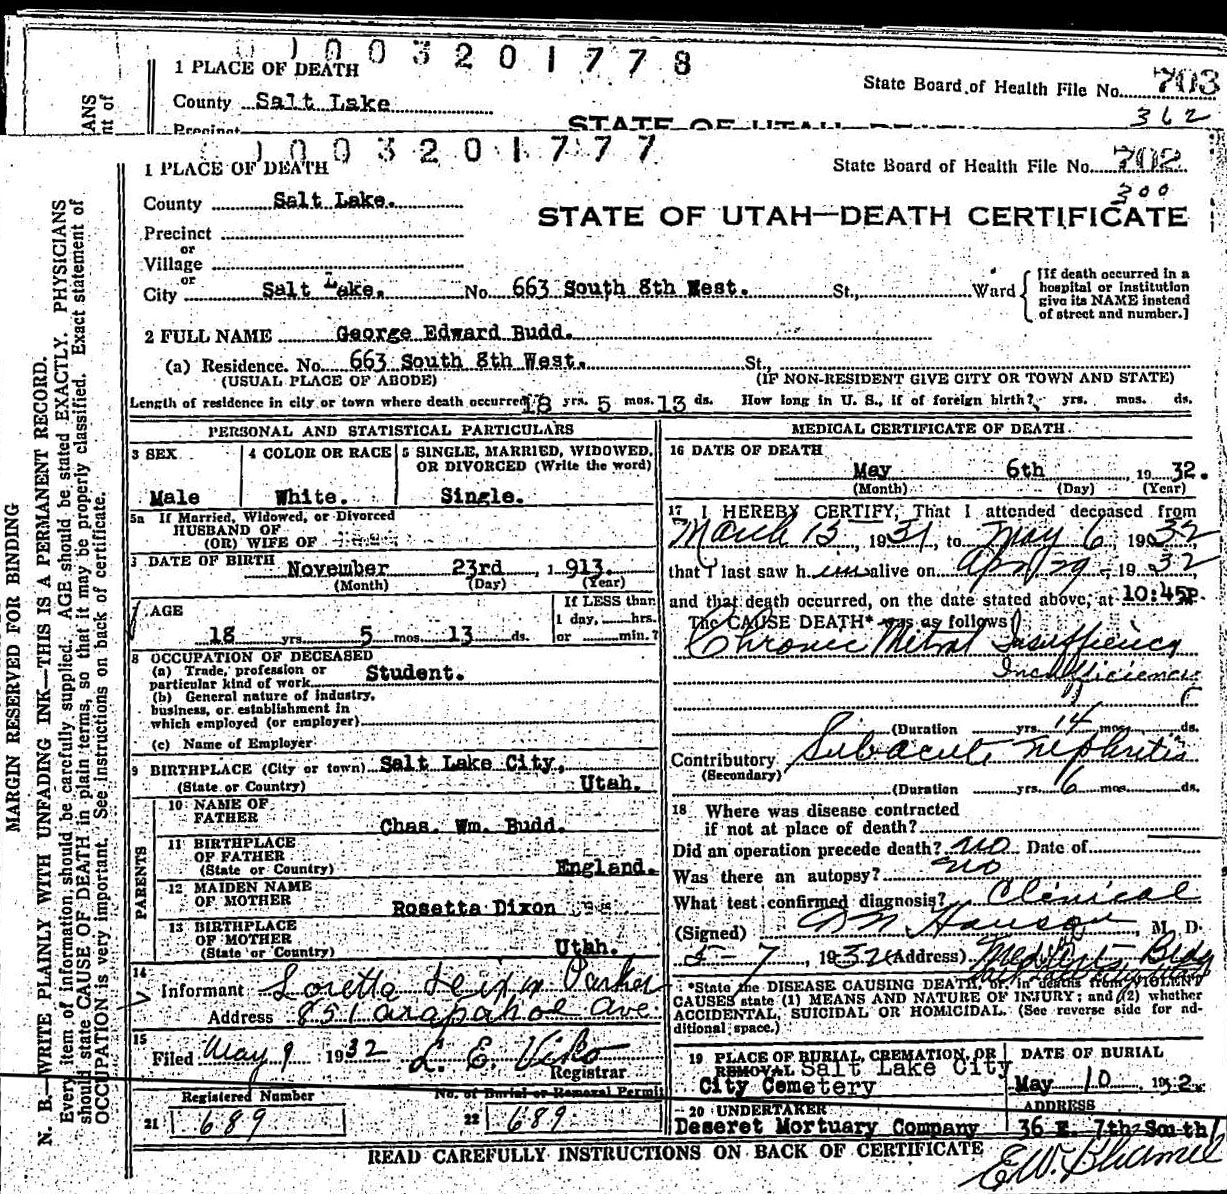 0003201778
1 PLACE OF DEATH
State Board of Health File No. 703
County Salt Lake
362
Precinct
STATE OF UTAH—DEATH
0003201777
1 PLACE OF DEATH
State Board of Health File No. 702
200
County Salt Lake.
STATE OF UTAH—DEATH CERTIFICATE
Precinct
or
Village
or
City Salt Lake. No. 663 South 8th West. St., Ward
[If death occurred in a hospital or institution give its NAME instead of street and number.]
2 FULL NAME George Edward Budd.
(a) Residence. No. 663 South 8th West. St.,
(USUAL PLACE OF ABODE) (IF NON-RESIDENT GIVE CITY OR TOWN AND STATE)
Length of residence in city or town where death occurred 18 yrs. 5 mos. 13 ds. How long in U. S., if of foreign birth? yrs. mos. ds.
PERSONAL AND STATISTICAL PARTICULARS
3 SEX
Male
4 COLOR OR RACE
White.
5 SINGLE, MARRIED, WIDOWED, OR DIVORCED (Write the word)
Single.
5a If Married, Widowed, or Divorced
HUSBAND OF
(OR) WIFE OF
DATE OF BIRTH November 23rd, 1913.
(Month) (Day) (Year)
AGE
18 yrs. 5 mos. 13 ds.
If LESS than
1 day, hrs.
or min.?
8 OCCUPATION OF DECEASED
(a) Trade, profession or
particular kind of work Student.
(b) General nature of industry,
business, or establishment in
which employed (or employer)
(c) Name of Employer
9 BIRTHPLACE (City or town) Salt Lake City,
(State or Country) Utah.
PARENTS
10 NAME OF
FATHER Chas. Wm. Budd.
11 BIRTHPLACE
OF FATHER
(State or Country) England.
12 MAIDEN NAME
OF MOTHER Rosetta Dixon
13 BIRTHPLACE
OF MOTHER
(State or Country) Utah.
14
Informant Loretta Parker
Address 851 Arapahoe Ave
15
Filed May 9 1932 L. E. Registrar
Registered Number
21 689
No. of Burial or Removal Permit
22 689
MEDICAL CERTIFICATE OF DEATH.
16 DATE OF DEATH
May 6th, 1932.
(Month) (Day) (Year)
17 I HEREBY CERTIFY, That I attended deceased from
March 15, 1931, to May 6 1932
that I last saw him alive on Apr 29 - 1932
and that death occurred, on the date stated above, at 10:45P.
The CAUSE DEATH* was as follows
Chronic Mitral Insufficiency
Insufficiency
(Duration yrs. 14 mos. ds.
Contributory Subacute Nephritis
(Secondary)
(Duration yrs. 6 mos. ds.
18 Where was disease contracted
if not at place of death?
Did an operation precede death? no Date of
Was there an autopsy? no
What test confirmed diagnosis? Clinical
(Signed) Hanson, M. D.
5-7, 1932 (Address) Bldg
*State the DISEASE CAUSING DEATH, or, in deaths from VIOLENT
CAUSES state (1) MEANS AND NATURE OF INJURY; and (2) whether
ACCIDENTAL, SUICIDAL OR HOMICIDAL. (See reverse side for ad-
ditional space.)
19 PLACE OF BURIAL, CREMATION, OR
REMOVAL Salt Lake City
City Cemetery
DATE OF BURIAL
May 10, 1932.
20 UNDERTAKER
Deseret Mortuary Company
ADDRESS
36 E. 7th South
READ CAREFULLY INSTRUCTIONS ON BACK OF CERTIFICATE
MARGIN RESERVED FOR BINDING
N. B.—WRITE PLAINLY WITH UNFADING INK—THIS IS A PERMANENT RECORD.
Every item of information should be carefully supplied. AGE should be stated EXACTLY. PHYSICIANS
should state CAUSE OF DEATH in plain terms, so that it may be properly classified. Exact statement of
OCCUPATION is very important. See instructions on back of certificate.